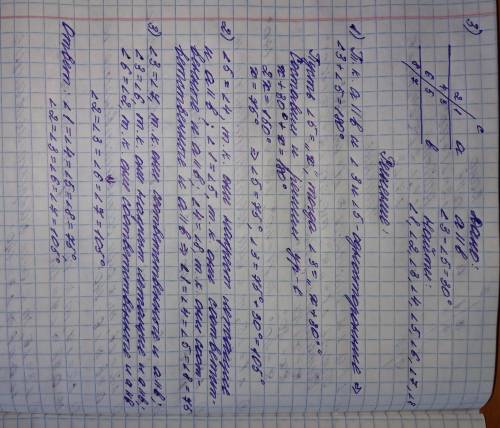 3)
c
2 1 a
4 3
6 5
8 7 b
Дано:
a || b
∠3 - ∠5 = 30°
Найти:
∠1, ∠2, ∠3, ∠4, ∠5, ∠6, ∠7, ∠8
Решение:
1) Т.к. a || b и ∠3 и ∠5 - односторонние ⇒
∠3 + ∠5 = 180°
Пусть ∠5 = „x", тогда ∠3 = „x + 30°"
Составим и решим ур-е
x + 30° + x = 180°
2x = 150°
x = 75° ⇒ ∠5 = 75°, ∠3 = 75° + 30° = 105°
2) ∠5 = ∠4, т.к. они накрест лежащие
и a || b; ∠1 = ∠5, т.к. они соответст-
венные и a || b; ∠4 = ∠8 т.к. они соот-
ветственные и a || b ⇒ ∠1 = ∠4 = ∠5 = ∠8 = 75
3) ∠3 = ∠7, т.к. они соответственные и a || b;
∠3 = ∠6, т.к. они накрест лежащие и a || b;
∠6 = ∠2 т.к. они соответственные и a || b
⇓
∠2 = ∠3 = ∠6 = ∠7 = 105°
Ответ: ∠1 = ∠4 = ∠5 = ∠8 = 75°,
∠2 = ∠3 = ∠6 = ∠7 = 105°